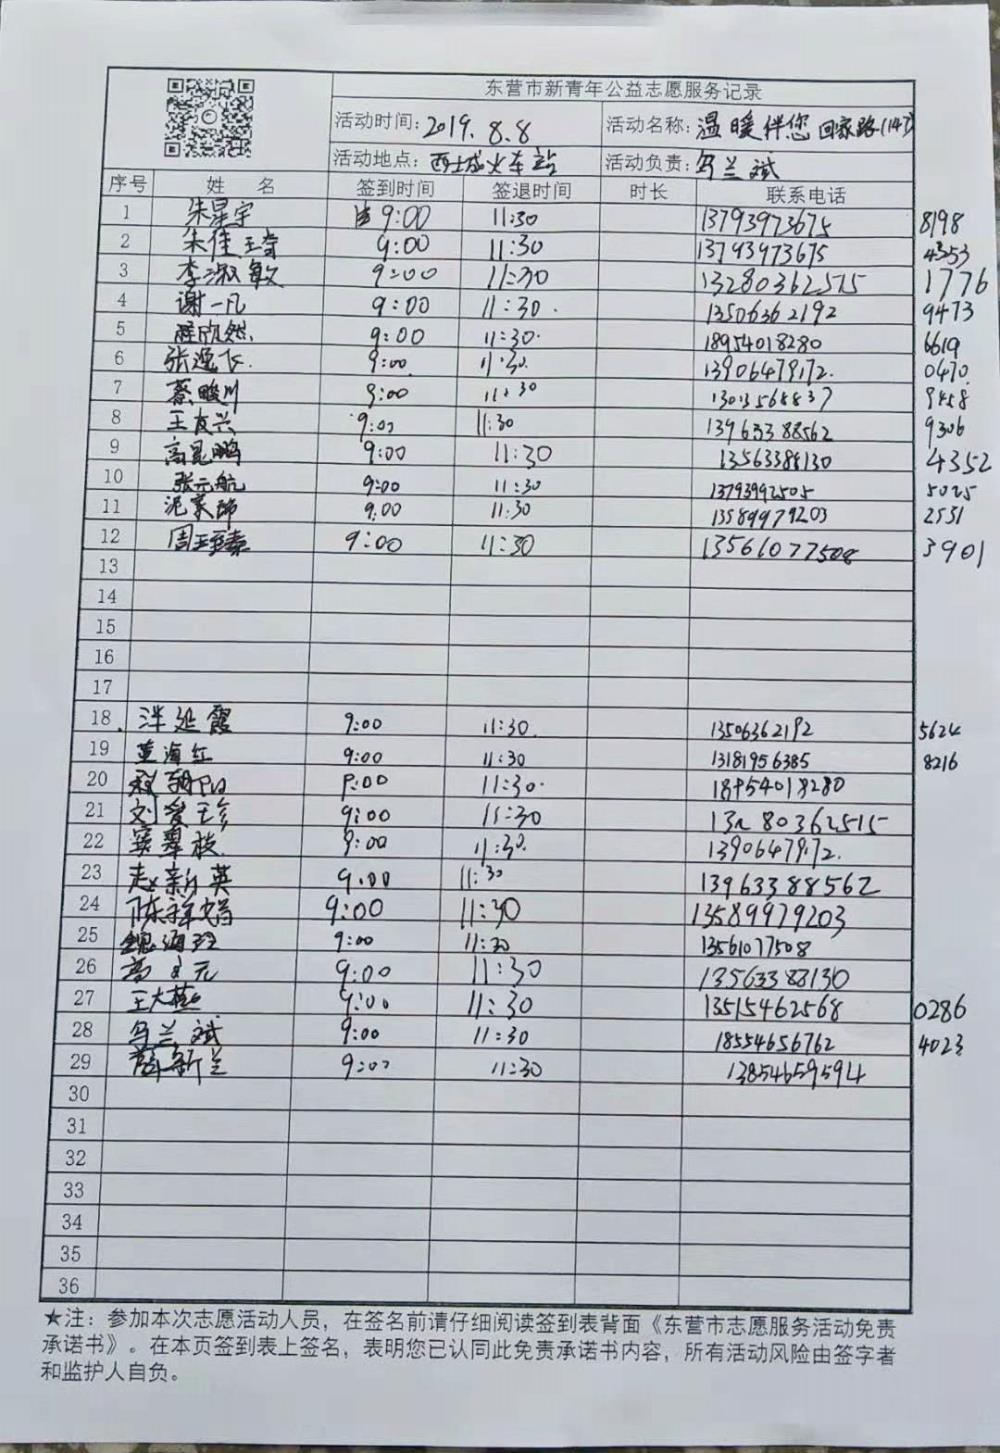 东营市新青年公益志愿服务记录
活动时间: 2019.8.8 活动名称: 温暖伴您回家路(147)
活动地点: 西土城火车站 活动负责: 乌兰斌
序号 姓 名 签到时间 签退时间 时长 联系电话
1 朱星宇 9:00 11:30 13793973675 8198
2 朱佳琦 9:00 11:30 13793973675 4353
3 李淑敏 9:00 11:30 13280362515 1776
4 谢一凡 9:00 11:30. 13506362192 9473
5 欣然 9:00 11:30. 18954018280 6619
6 张逸飞. 9:00 11:30. 13906479172. 0470.
7 蔡畯川 9:00 11:30 13013568837 9458
8 王友兴 9:00 11:30 13963388562 9306
9 高昆鹏 9:00 11:30 13563388130 4352
10 张元航 9:00 11:30 13793992505 5025
11 泥家帅 9:00 11:30 13589979203 2551
12 周 9:00 11:30 13561077508 3901
13
14
15
16
17
18 延霞 9:00 11:30. 13506362192 5624
19 董海红 9:00 11:30 13181956385 8216
20 9:00 11:30. 18954018280
21 刘爱珍 9:00 11:30 13280362515
22 窦翠枝. 9:00 11:30. 13906479172.
23 赵新英 9:00 11:30 13963388562
24 陈祥娟 9:00 11:30 13589979203
25 魏海玲 9:00 11:30 13561077508
26 高元 9:00 11:30 13563388130
27 王大燕 9:00 11:30 13515462568 0286
28 乌兰斌 9:00 11:30 18554656762 4023
29 薛新兰 9:00 11:30 13854659594
30
31
32
33
34
35
36
★注：参加本次志愿活动人员，在签名前请仔细阅读签到表背面《东营市志愿服务活动免责
承诺书》。在本页签到表上签名，表明您已认同此免责承诺书内容，所有活动风险由签字者
和监护人自负。